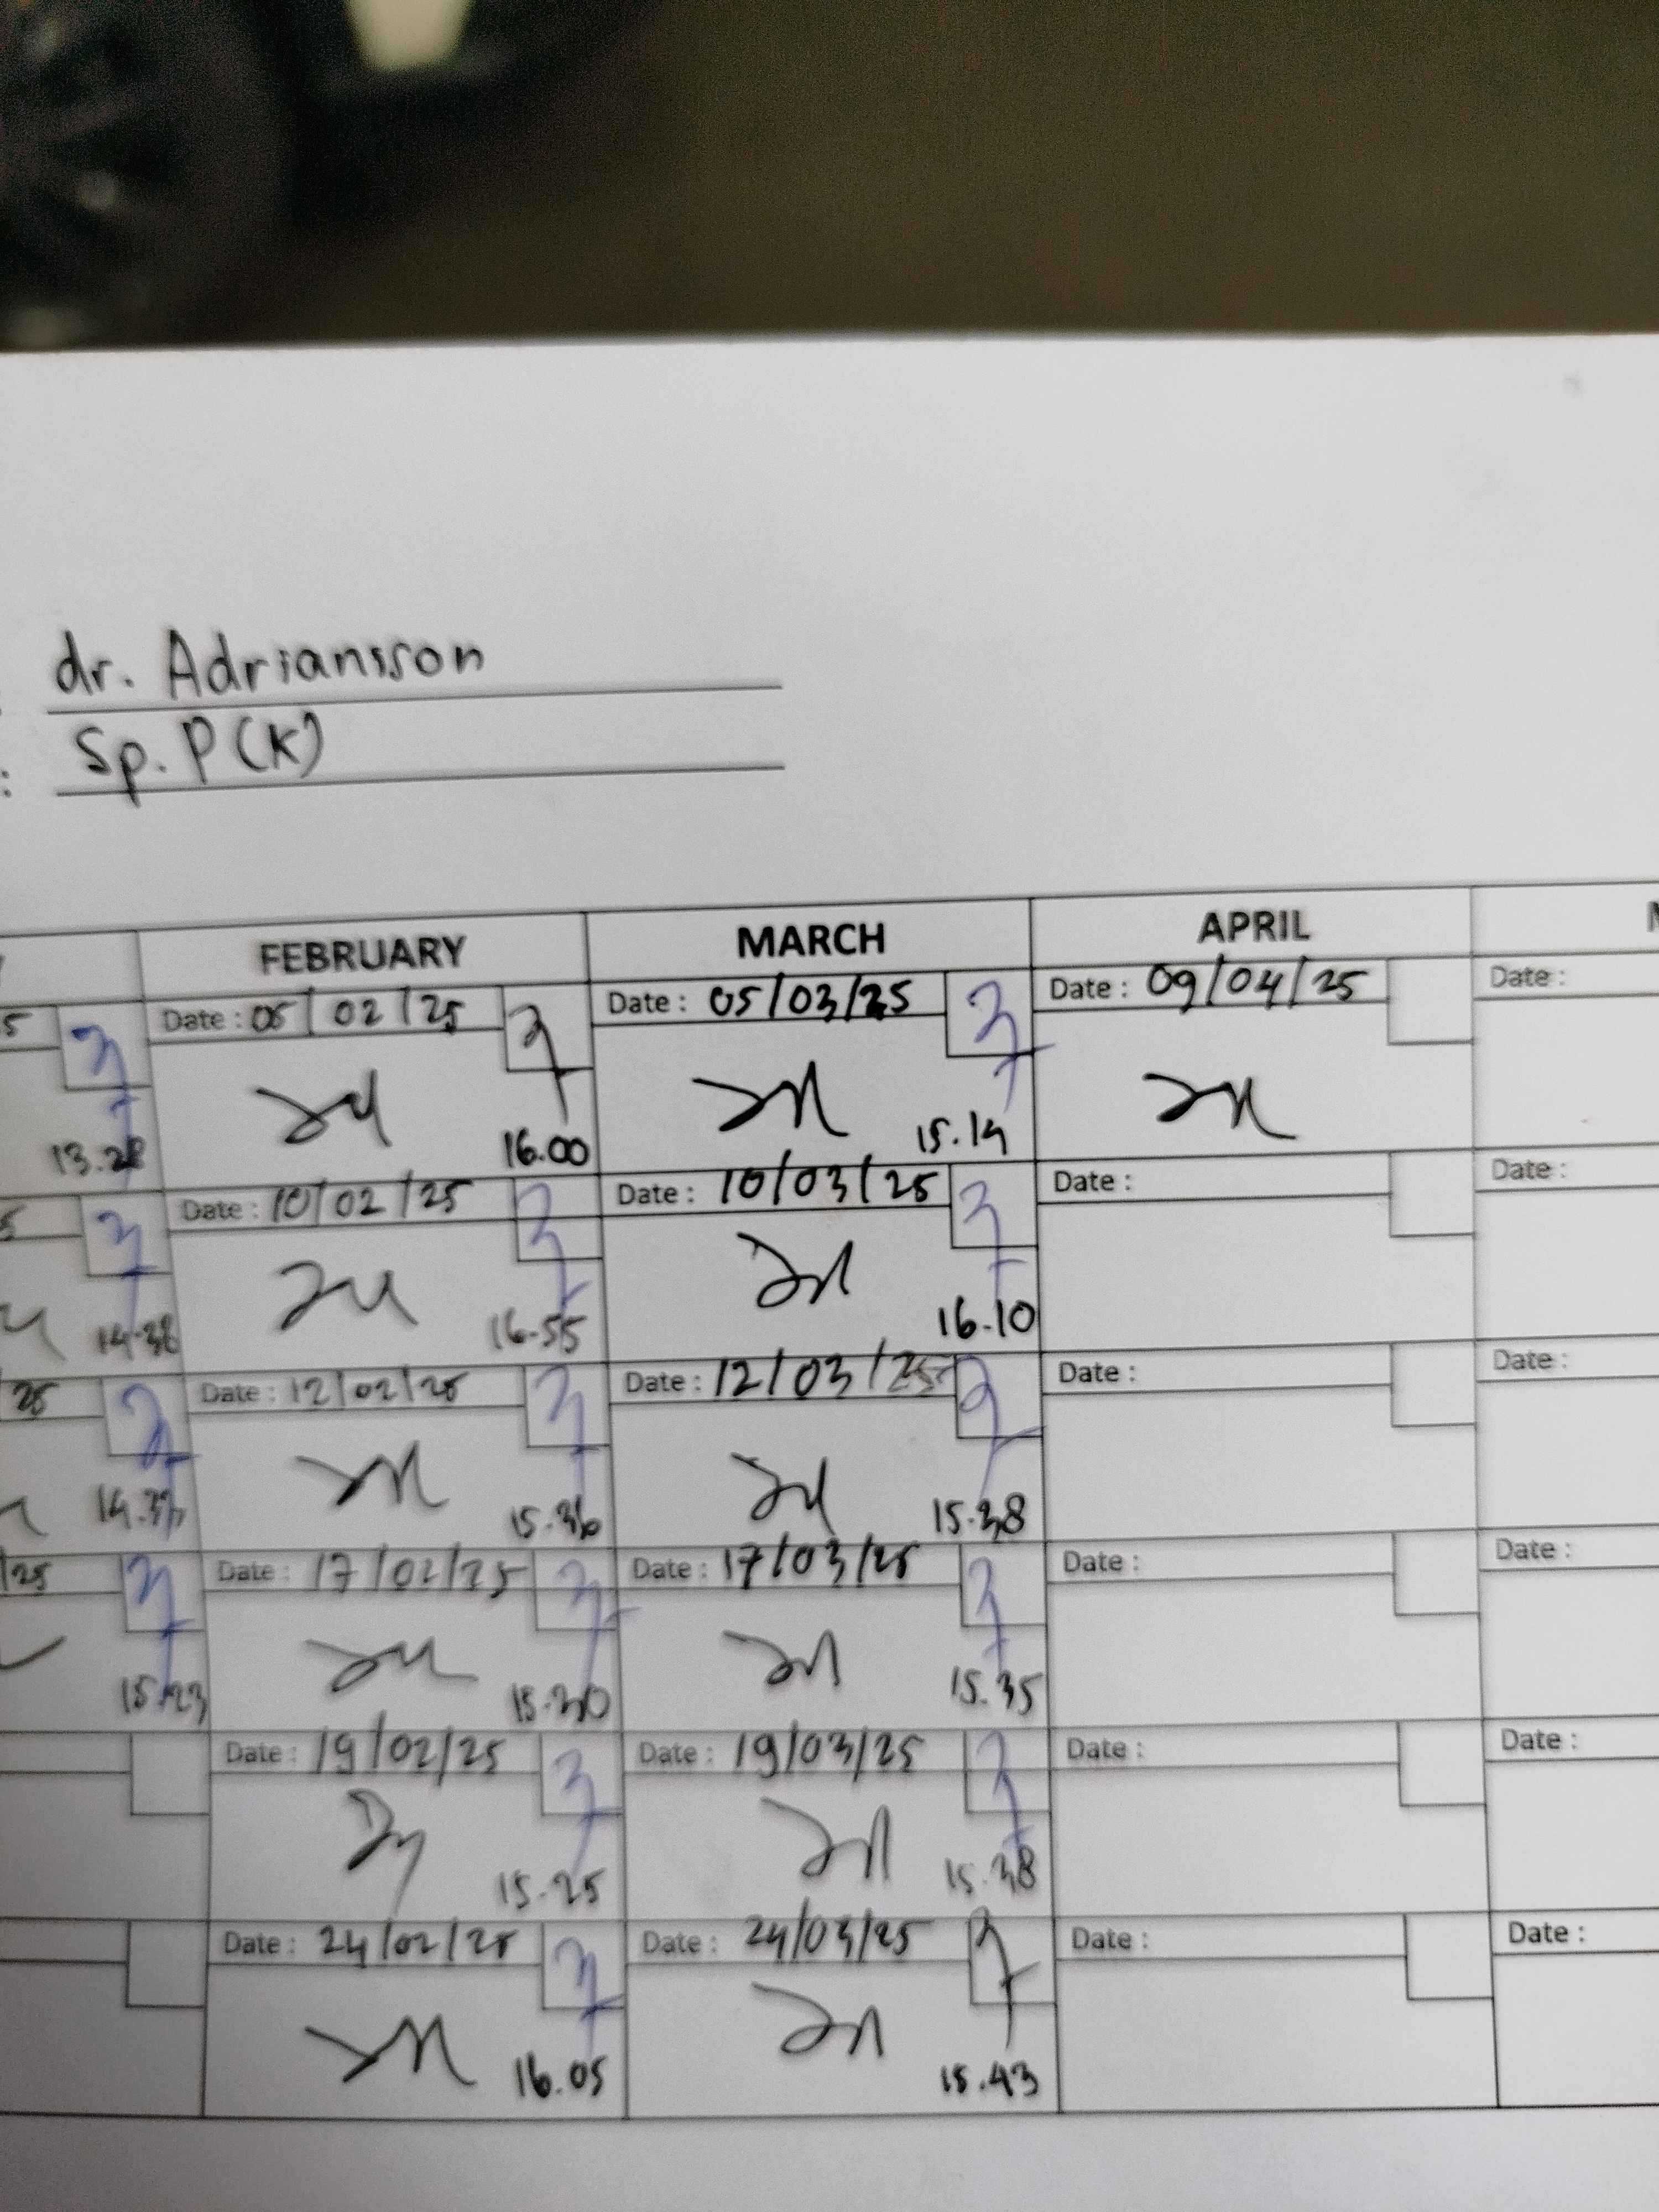 dr. Adriansson
: Sp. P(K)
FEBRUARY MARCH APRIL
5 Date : 05/02/25 Date : 05/03/25 Date : 09/04/25 Date :
13.28 16.00 15.14
5 Date : 10/02/25 Date : 10/03/25 Date : Date :
14.38 16.55 16.10
25 Date : 12/02/25 Date : 12/03/25 Date : Date :
15.36 15.38
/25 Date : 17/02/25 Date : 17/03/25 Date : Date :
15.23 15.30 15.35
Date : 19/02/25 Date : 19/03/25 Date : Date :
15.25 15.38
Date : 24/02/25 Date : 24/03/25 Date : Date :
16.05 15.43